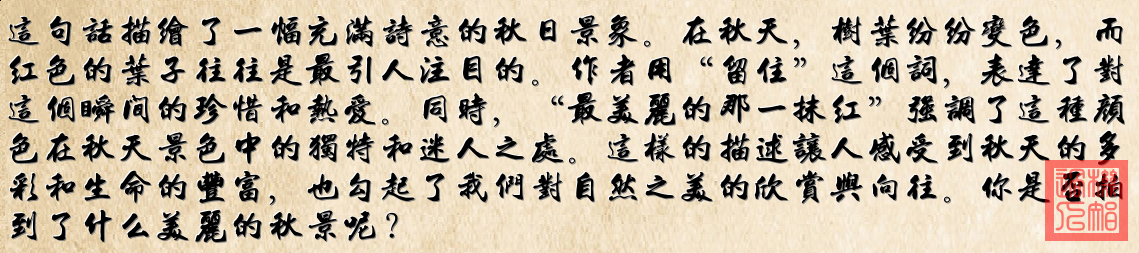 這句話描繪了一幅充滿詩意的秋日景象。在秋天，樹葉紛紛變色，而
紅色的葉子往往是最引人注目的。作者用“留住”這個詞，表達了對
這個瞬间的珍惜和熱愛。同時，“最美麗的那一抹紅”強調了這種顔
色在秋天景色中的獨特和迷人之處。這樣的描述讓人感受到秋天的多
彩和生命的豐富，也勾起了我們對自然之美的欣賞與向往。你是否拍
到了什么美麗的秋景呢？